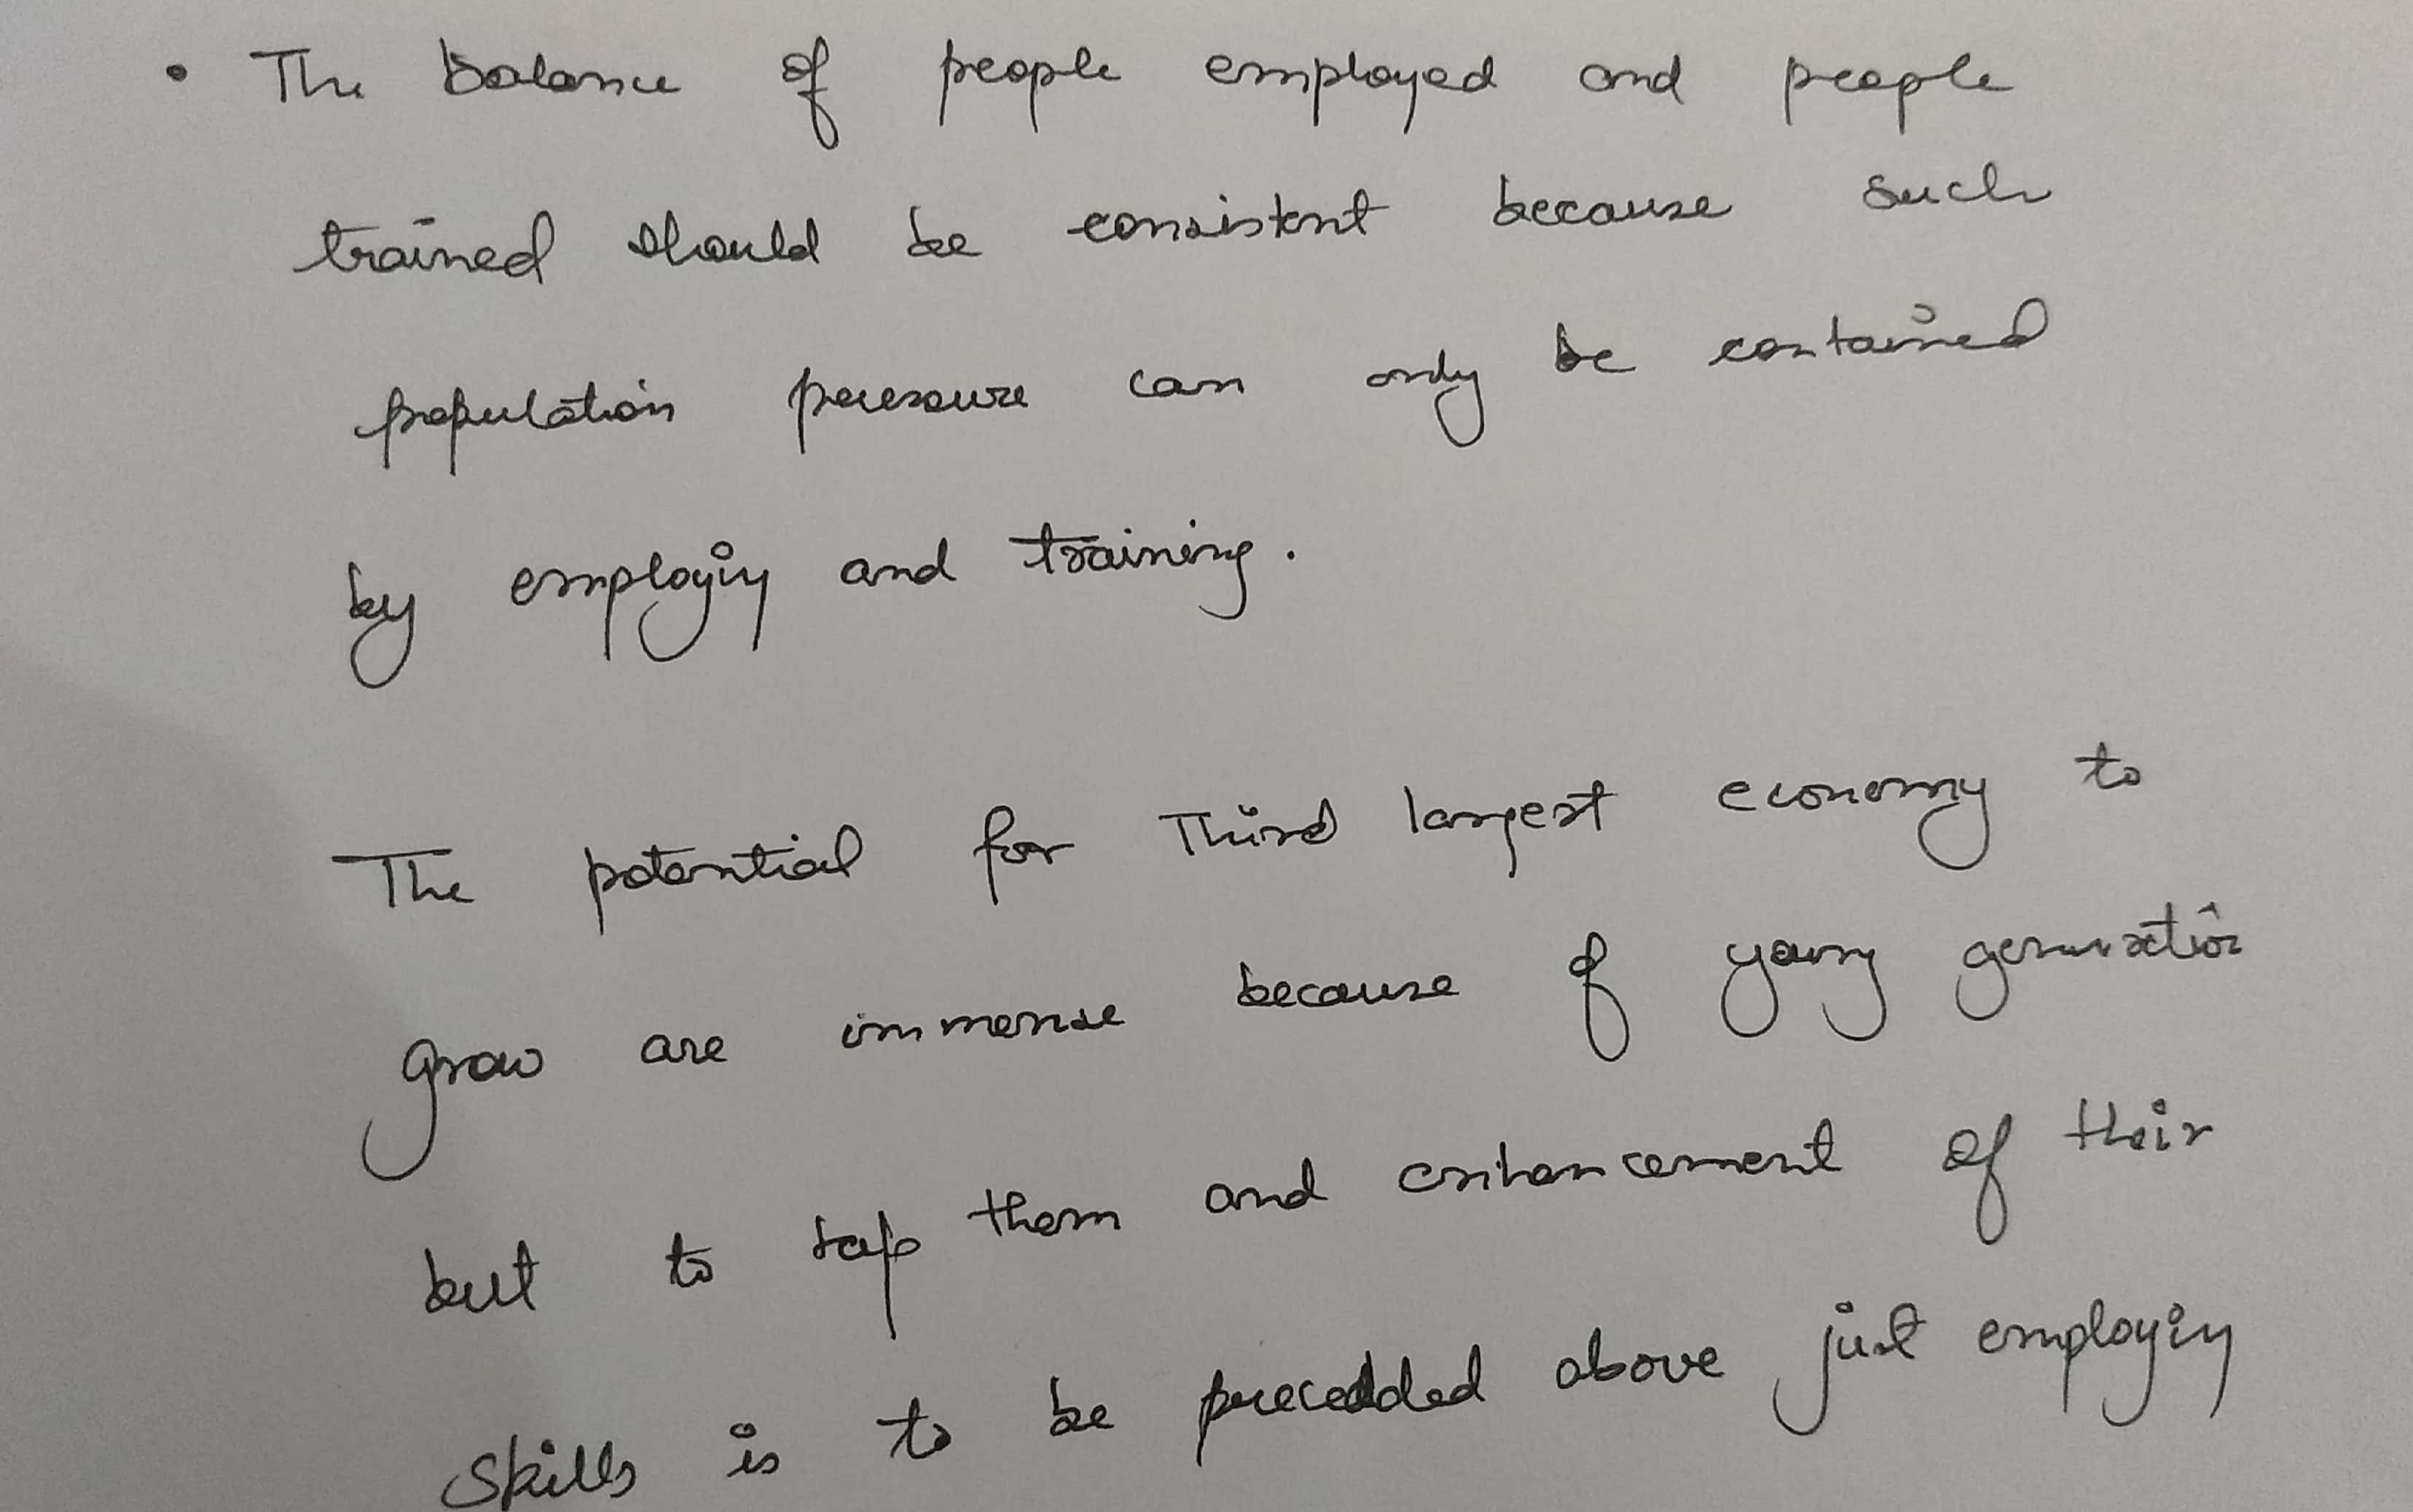 • The balance of people employed and people
trained should be consistent because such
population pressure can only be contained
by employing and training.
The potential for Third largest economy to
grow are immense because of young generation
but to tap them and enhancement of their
skills is to be precedded above just employing